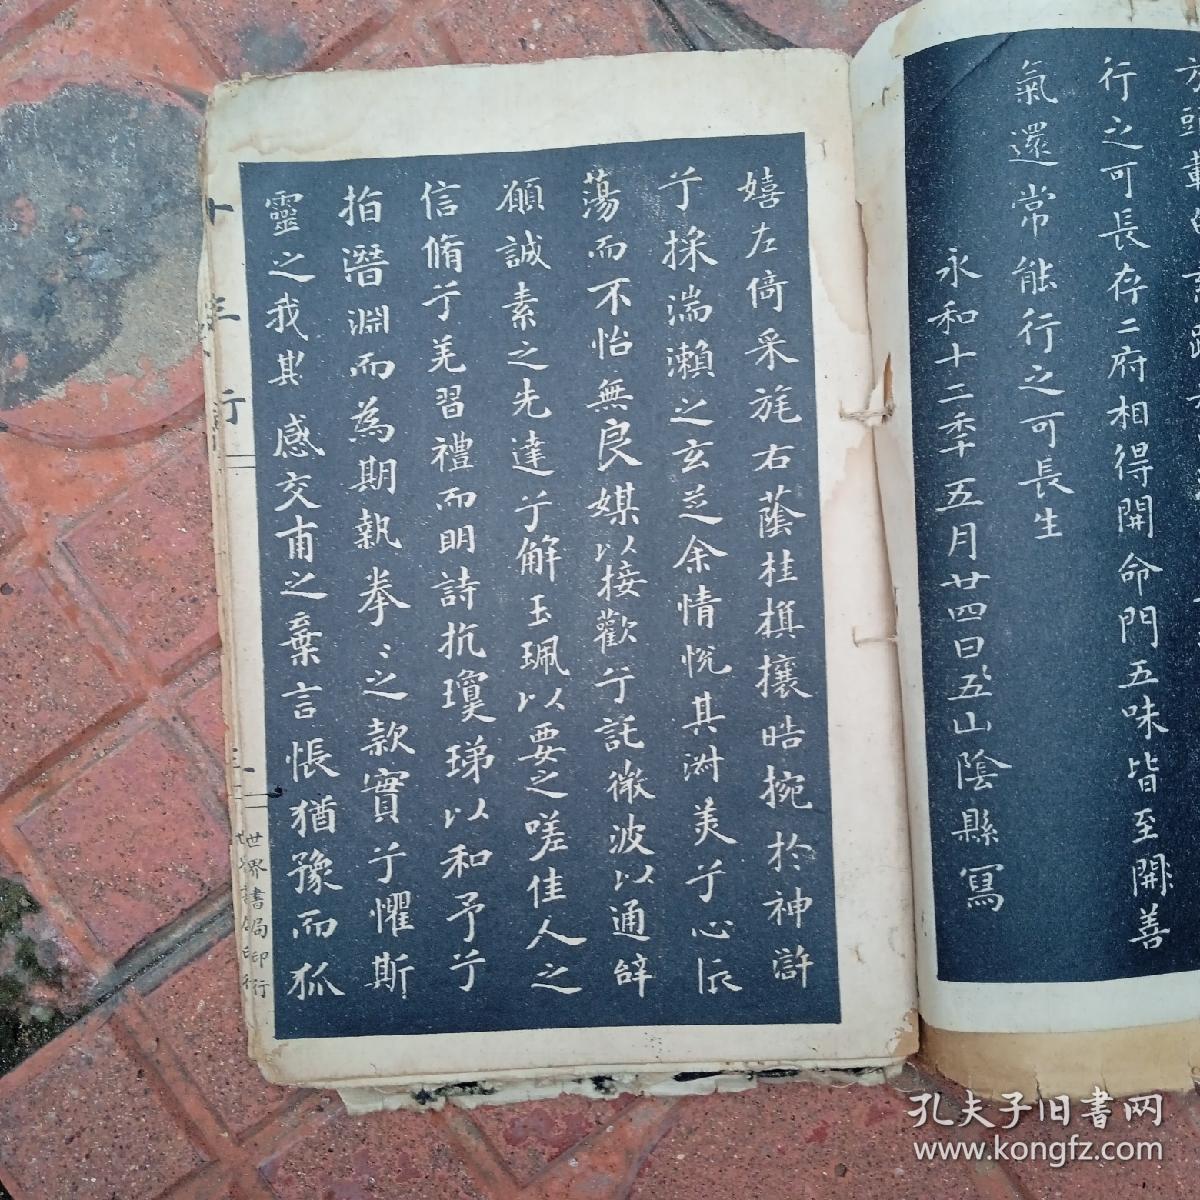 行之可長存二府相得開命門五味皆至開善
氣還常能行之可長生
永和十二秊五月廿四日五山陰縣寫
嬉左倚采旄右蔭桂旗攘皓捥於神滸
兮採湍瀨之玄芝余情悅其淑美兮心振
蕩而不怡無良媒以接歡兮託微波以通辭
願誠素之先達兮解玉珮以要之嗟佳人之
信脩兮羌習禮而明詩抗瓊珶以和予兮
指潛淵而為期執拳〻之款實兮懼斯
靈之我欺感交甫之棄言悵猶豫而狐
十三行
三
世界書局印行
孔夫子旧书网
www.kongfz.com